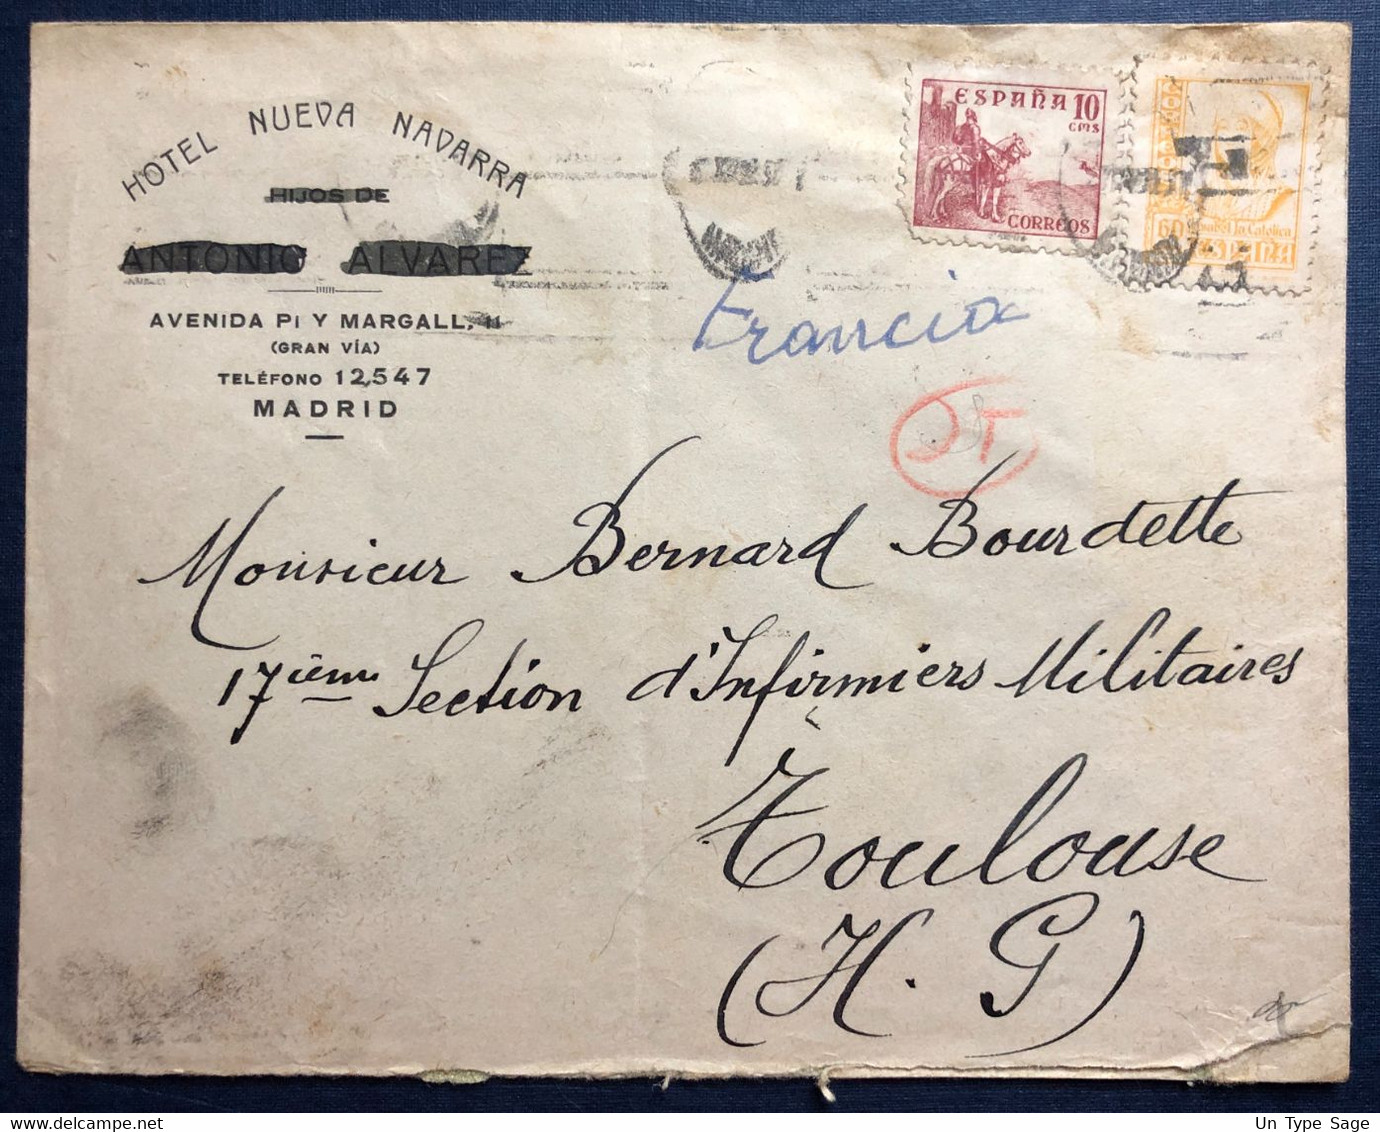 HOTEL NUEVA NAVARRA
HIJOS DE
ANTONIO ALVAREZ
AVENIDA PI Y MARGALL, 11
(GRAN VÍA)
TELÉFONO 12,547
MADRID
ESPAÑA 10
CMS
CORREOS
CORREOS
60
Isabel la Católica
ESPAÑA
Francia
Monsieur Bernard Bourdette
17ième Section d'Infirmiers Militaires
Toulouse
(H. G)
Un Type Sage